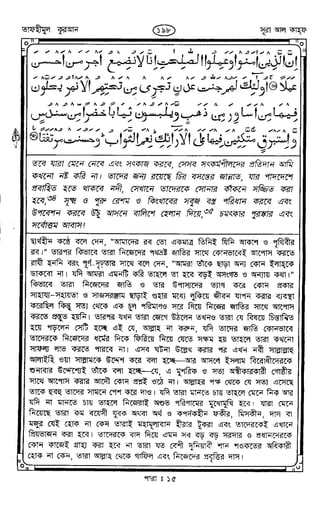 তাফহীমুল কুরআন
১৯৮
সূরা আল কাহফ
إِنَّ الَّذِينَ آمَنُوا وَعَمِلُوا الصَّلِحٰتِ إِنَّا لَا نُضِيعُ أَجْرَ مَنْ أَحْسَنَ
عَمَلًا ۞ أُولٰٓئِكَ لَهُمْ جَنّٰتُ عَدْنٍ تَجْرِي مِنْ تَحْتِهِمُ الْأَنْهٰرُ يُحَلَّوْنَ
فِيهَا مِنْ أَسَاوِرَ مِنْ ذَهَبٍ وَّيَلْبَسُونَ ثِيَابًا خُضْرًا مِّنْ سُنْدُسٍ
وَّإِسْتَبْرَقٍ مُّتَّكِئِينَ فِيهَا عَلَى الْأَرَائِكِ نِعْمَ الثَّوَابُ وَحَسُنَتْ مُرْتَفَقًا ۞
তবে যারা মেনে নেবে এবং সৎকাজ করবে, সেসব সৎকর্মশীলদের প্রতিদান আমি
কখনো নষ্ট করি না। তাদের জন্য রয়েছে চির বসন্তের জান্নাত, যার পাদদেশে
প্রবাহিত হতে থাকবে নদী, সেখানে তাদেরকে সোনার কাঁকনে সজ্জিত করা
হবে,৩৪ সূক্ষ্ম ও পুরু রেশম ও কিংখাবের সবুজ বস্ত্র পরিধান করবে এবং
উপবেশন করবে উঁচু আসনে বালিশে হেলান দিয়ে,৩৫ চমৎকার পুরস্কার এবং
সর্বোত্তম আবাস!
দ্ব্যর্থহীন কণ্ঠে বলে দেন, "আমাদের রব তো একমাত্র তিনিই যিনি আকাশ ও পৃথিবীর
রব।" তারপর কিভাবে তারা নিজেদের পথভ্রষ্ট জাতির সাথে কোনভাবেই আপোস করতে
রাযী হননি বরং পূর্ণ দৃঢ়তার সাথে বলে দেন, "আমরা তাঁকে ছাড়া অন্য কোন ইলাহকে
ডাকবো না। যদি আমরা এমনটি করি তাহলে তা হবে বড়ই অসংগত ও অন্যায় কথা।"
কিভাবে তারা নিজেদের জাতি ও তার উপাস্যদের ত্যাগ করে কোন প্রকার
সাহায্য-সহায়তা ও সাজসরঞ্জাম ছাড়াই গুহার মধ্যে লুকিয়ে জীবন যাপন করার ব্যবস্থা
করেছিল কিন্তু সত্য থেকে এক চুল পরিমাণও সরে গিয়ে নিজের জাতির সাথে আপোস
করতে প্রস্তুত হয়নি। তারপর যখন তারা জেগে উঠলেন তখনও তারা যে বিষয়ে চিন্তান্বিত
হয়ে পড়লেন সেটি হচ্ছে এই যে, আল্লাহ না করুন, যদি তাদের জাতি কোনভাবে
তাদেরকে নিজেদের ধর্মের দিকে ফিরিয়ে নিয়ে যেতে সক্ষম হয় তাহলে তারা কখনো
সাফল্য লাভ করতে পারবে না। এসব ঘটনা উল্লেখ করার পর এখন নবী সাল্লাল্লাহু
আলাইহি ওয়া সাল্লামকে উদ্দেশ করে বলা হচ্ছে—আর আসলে ইসলাম বিরোধীদেরকে
শুনাবার উদ্দেশ্যেই তাঁকে বলা হচ্ছে—যে, এ মুশরিক ও সত্য অস্বীকারকারী গোষ্ঠীর
সাথে আপোস করার আদৌ কোন প্রশ্নই ওঠে না। আল্লাহর পক্ষ থেকে যে সত্য এসেছে
তাকে হুবহু তাদের সামনে পেশ করে দাও। যদি তারা মানতে চায় তাহলে মেনে নিক আর
যদি না মানতে চায় তাহলে নিজেরাই অশুভ পরিণামের মুখোমুখি হবে। যারা মেনে
নিয়েছে তারা কম বয়েসী যুবক অথবা অর্থ ও কপর্দকহীন ফকীর, মিসকীন, দাস বা
মজুর যেই হোক না কেন তারাই মহামূল্যবান হীরার টুকরা এবং তাদেরকেই এখানে
প্রিয়ভাজন করা হবে। তাদেরকে বাদ দিয়ে এমন সব বড় বড় সরদার ও প্রধানদেরকে
কোন কাজেই গ্রাহ্য করা হবে না তারা যত বেশী দুনিয়াবী শান শওকতের অধিকারী
হোক না কেন, তারা আল্লাহ থেকে গাফিল এবং নিজেদের প্রবৃত্তির দাস।
পারা : ১৫